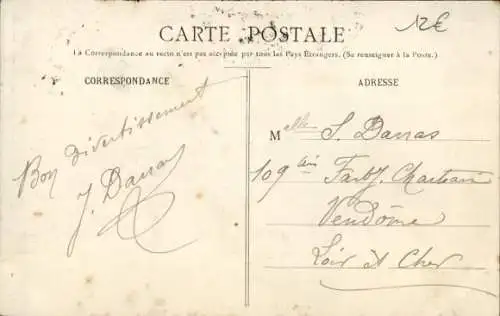 12€
CARTE POSTALE
La Correspondance au recto n'est pas acceptée par tous les Pays Étrangers. (Se renseigner à la Poste.)
CORRESPONDANCE
ADRESSE
Bon divertissement
J. Darras
Melle S. Darras
109 bis Faubg Chartrain
Vendôme
Loir et Cher